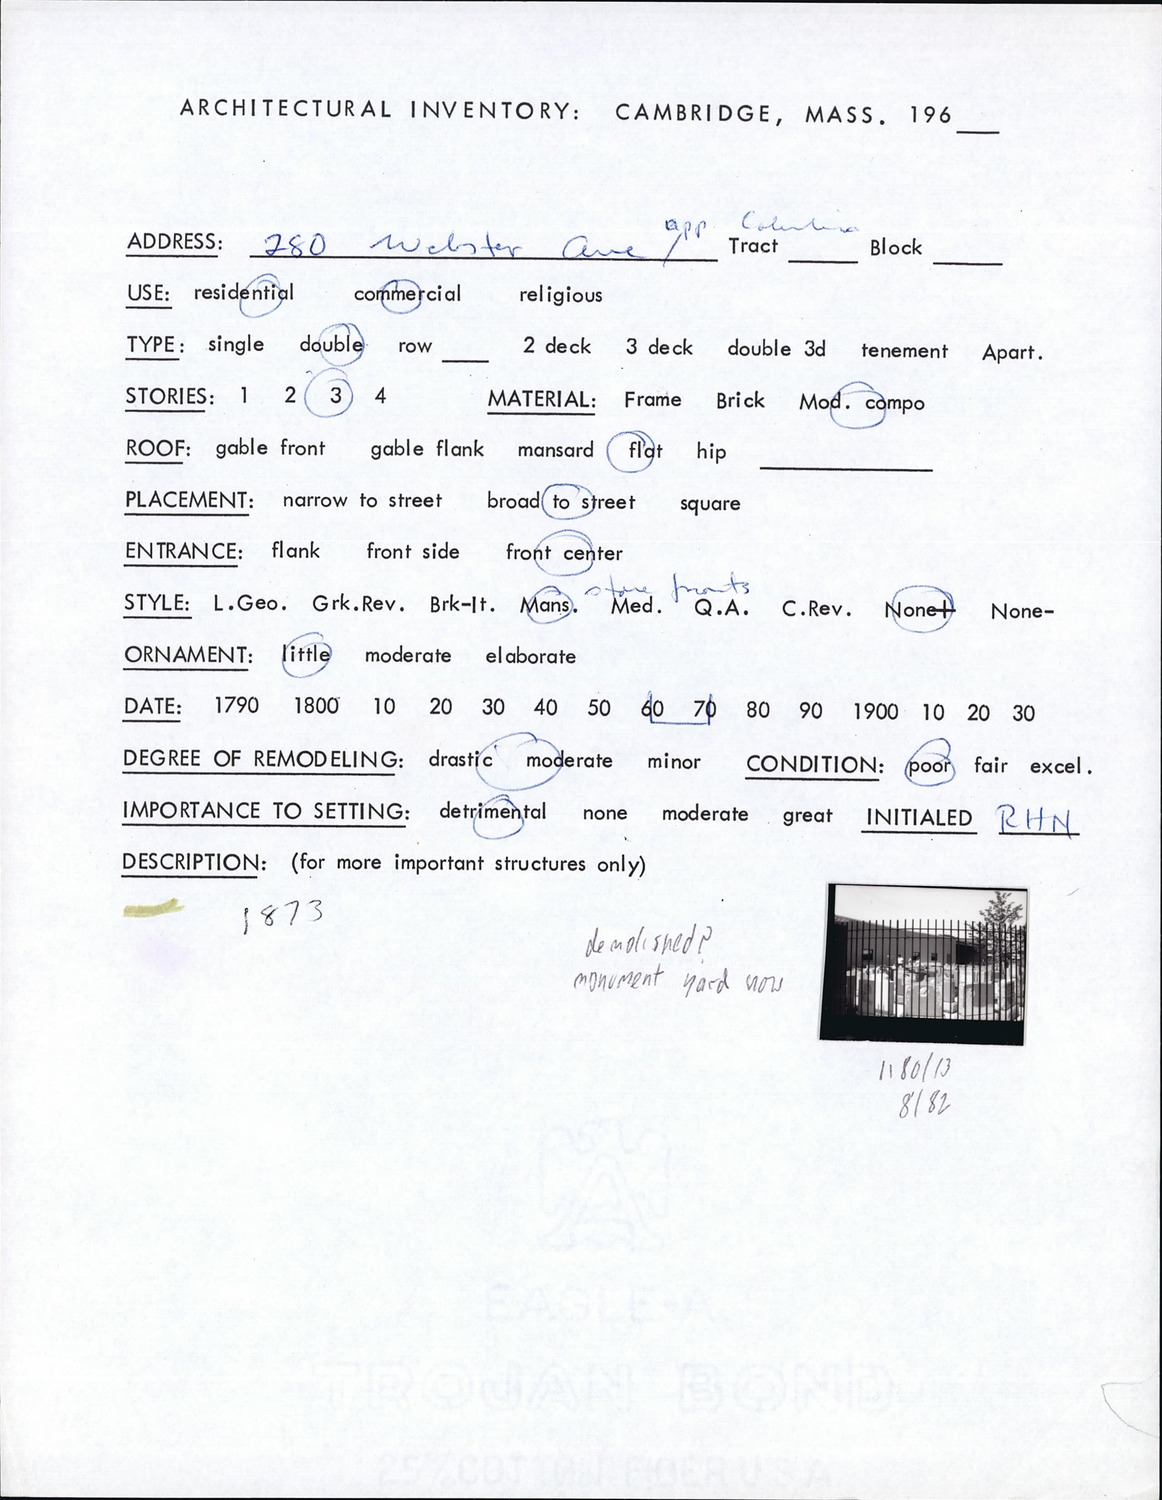 ARCHITECTURAL INVENTORY: CAMBRIDGE, MASS. 196___
ADDRESS: 280 Webster Ave / opp. Columbia Tract ____ Block ____
USE: residential commercial religious
TYPE: single double row ___ 2 deck 3 deck double 3d tenement Apart.
STORIES: 1 2 3 4 MATERIAL: Frame Brick Mod. compo
ROOF: gable front gable flank mansard flat hip ____
PLACEMENT: narrow to street broad to street square
ENTRANCE: flank front side front center
store fronts
STYLE: L.Geo. Grk.Rev. Brk-It. Mans. Med. Q.A. C.Rev. None+ None-
ORNAMENT: little moderate elaborate
DATE: 1790 1800 10 20 30 40 50 60 70 80 90 1900 10 20 30
DEGREE OF REMODELING: drastic moderate minor CONDITION: poor fair excel.
IMPORTANCE TO SETTING: detrimental none moderate great INITIALED RHN
DESCRIPTION: (for more important structures only)
1873
demolished?
monument yard now
1180/13
8/82
EAGLE-A
TROJAN BOND
25% COTTON FIBER U S A